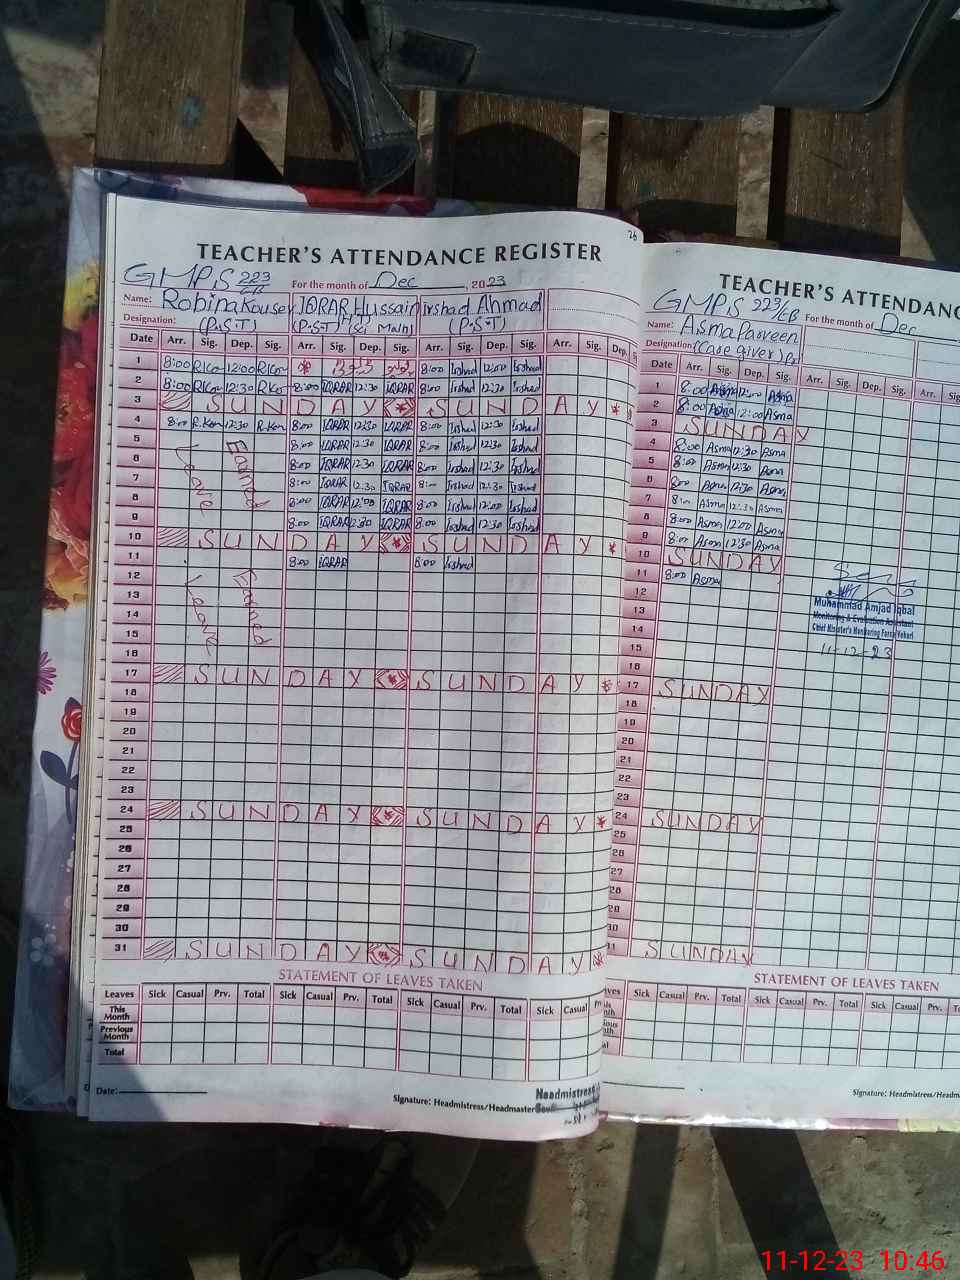 26
TEACHER'S ATTENDANCE REGISTER
GMPS 223/EB For the month of Dec, 2023
Name: Robina Kouser IQRAR Hussain Irshad Ahmad
Designation: (P.S.T) (P.S.T) (Sci Math) (P.S.T)
Date Arr. Sig. Dep. Sig. Arr. Sig. Dep. Sig. Arr. Sig. Dep. Sig. Arr. Sig. Dep.
1 8:00 12:00 8:00 Irshad 12:00 Irshad
2 8:00 12:30 8:00 IQRAR 12:30 IQRAR 8:00 Irshad 12:30 Irshad
3 SUNDAY SUNDAY
4 8:00 12:30 8:00 IQRAR 12:30 IQRAR 8:00 Irshad 12:30 Irshad
5 8:00 IQRAR 12:30 IQRAR 8:00 Irshad 12:30 Irshad
6 8:00 IQRAR 12:30 IQRAR 8:00 Irshad 12:30 Irshad
7 8:00 IQRAR 12:30 IQRAR 8:00 Irshad 12:30 Irshad
8 8:00 IQRAR 12:00 IQRAR 8:00 Irshad 12:00 Irshad
9 8:00 IQRAR 12:30 IQRAR 8:00 Irshad 12:30 Irshad
Earned
Leave
10 SUNDAY SUNDAY
11 8:00 IQRAR 8:00 Irshad
12
13
14
15
16
Earned
Leave
17 SUNDAY SUNDAY
18
19
20
21
22
23
24 SUNDAY SUNDAY
25
26
27
28
29
30
31 SUNDAY SUNDAY
STATEMENT OF LEAVES TAKEN
Leaves Sick Casual Prv. Total Sick Casual Prv. Total Sick Casual Prv. Total Sick Casual
This Month
Previous Month
Total
Date:
Signature: Headmistress/Headmaster
Headmistress
TEACHER'S ATTENDANC
GMPS 223/EB For the month of Dec
Name: Asma Parveen
Designation: (Care giver)
Date Arr. Sig. Dep. Sig. Arr. Sig. Dep. Sig. Arr. Sig.
1 8:00 Asma 12:00 Asma
2 8:00 Asma 12:00 Asma
3 SUNDAY
4 8:00 Asma 12:30 Asma
5 8:00 Asma 12:30 Asma
6 8:00 Asma 12:30 Asma
7 8:00 Asma 12:30 Asma
8 8:00 Asma 12:00 Asma
9 8:00 Asma 12:30 Asma
10 SUNDAY
11 8:00 Asma
12
13
14
15
16
Muhammad Amjad Iqbal
Monitoring & Evaluation Assistant
Chief Minister's Monitoring Force Vehari
11-12-23
17 SUNDAY
18
19
20
21
22
23
24 SUNDAY
25
26
27
28
29
30
31 SUNDAY
STATEMENT OF LEAVES TAKEN
Sick Casual Prv. Total Sick Casual Prv. Total Sick Casual Prv.
Signature: Headmistress/Headm
11-12-23 10:46